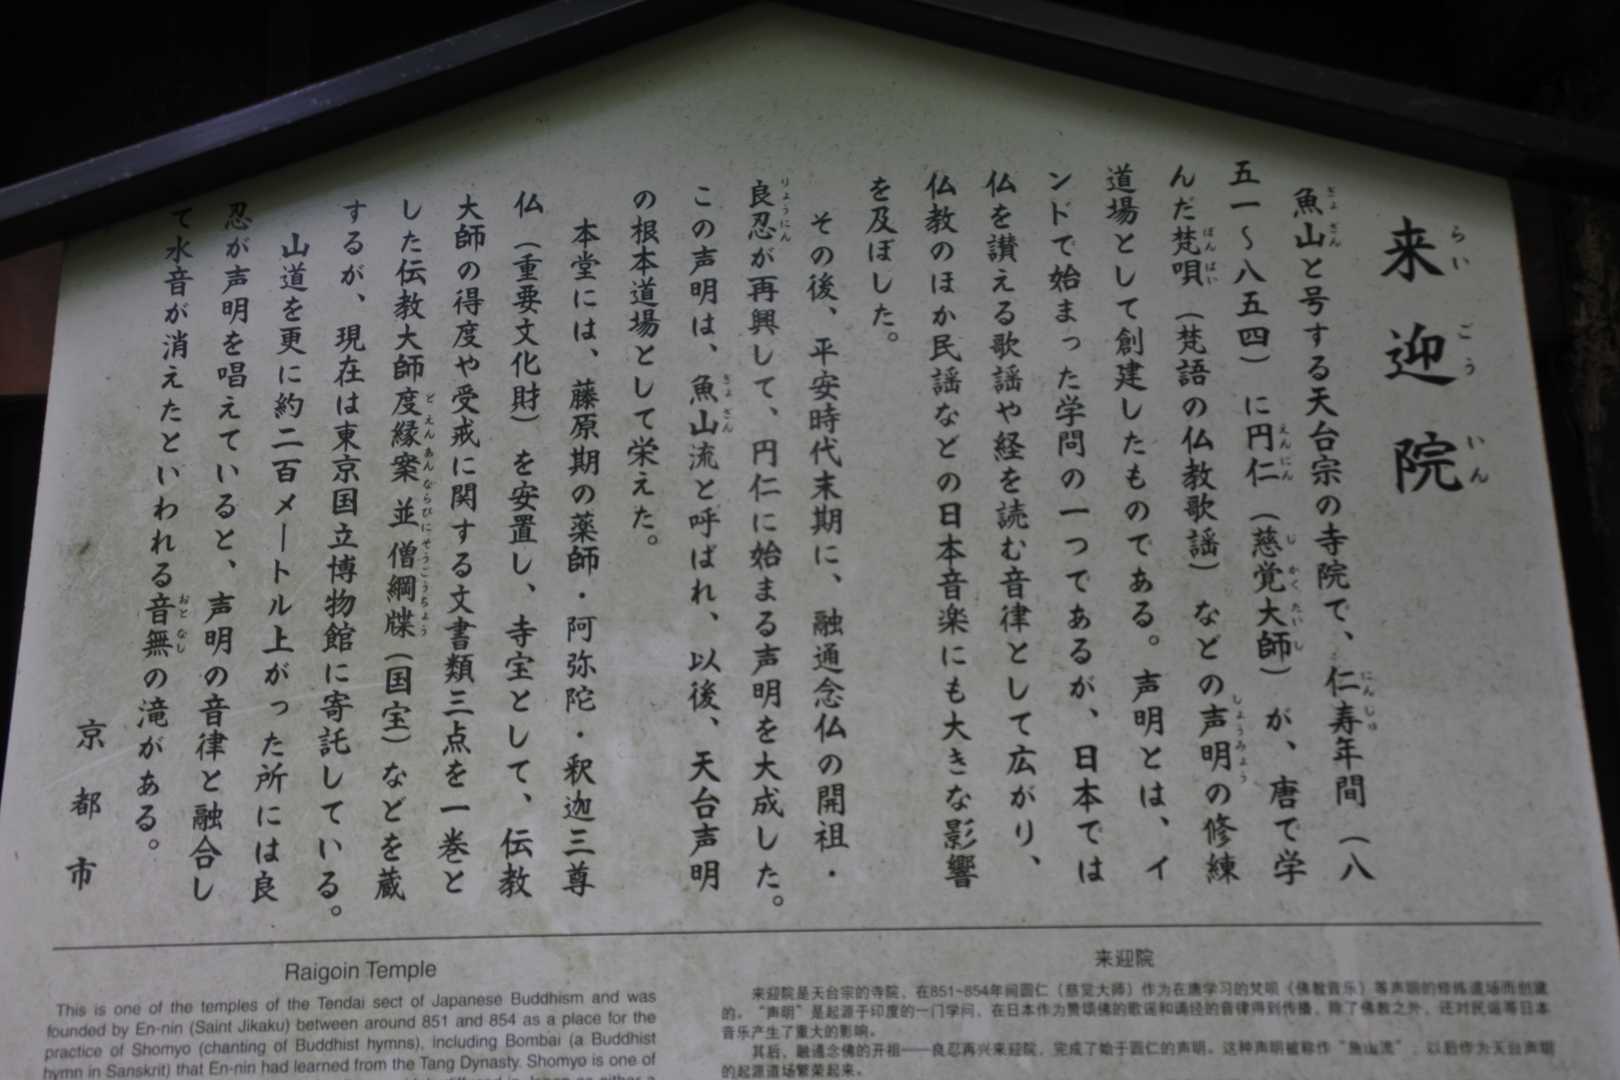 来迎院
らいごういん
魚山と号する天台宗の寺院で、仁寿年間（八
五一〜八五四）に円仁（慈覚大師）が、唐で学
んだ梵唄（梵語の仏教歌謡）などの声明の修練
道場として創建したものである。声明とは、イ
ンドで始まった学問の一つであるが、日本では
仏を讃える歌謡や経を読む音律として広がり、
仏教のほか民謡などの日本音楽にも大きな影響
を及ぼした。
その後、平安時代末期に、融通念仏の開祖・
良忍が再興して、円仁に始まる声明を大成した。
この声明は、魚山流と呼ばれ、以後、天台声明
の根本道場として栄えた。
本堂には、藤原期の薬師・阿弥陀・釈迦三尊
仏（重要文化財）を安置し、寺宝として、伝教
大師の得度や受戒に関する文書類三点を一巻と
した伝教大師度縁案並僧綱牒（国宝）などを蔵
するが、現在は東京国立博物館に寄託している。
山道を更に約二百メートル上がった所には良
忍が声明を唱えていると、声明の音律と融合し
て水音が消えたといわれる音無の滝がある。
京都市
Raigoin Temple
This is one of the temples of the Tendai sect of Japanese Buddhism and was
founded by En-nin (Saint Jikaku) between around 851 and 854 as a place for the
practice of Shomyo (chanting of Buddhist hymns), including Bombai (a Buddhist
hymn in Sanskrit) that En-nin had learned from the Tang Dynasty. Shomyo is one of
来迎院
来迎院是天台宗的寺院，在851~854年间圆仁（慈觉大师）作为在唐学习的梵呗（佛教音乐）等声明的修炼道场而创建
的。“声明”是起源于印度的一门学问，在日本作为赞颂佛的歌谣和诵经的音律得到传播，除了佛教之外，还对民谣等日本
音乐产生了重大的影响。
其后，融通念佛的开祖——良忍再兴来迎院，完成了始于圆仁的声明。这种声明被称作“鱼山流”，以后作为天台声明
的起源道场繁荣起来。